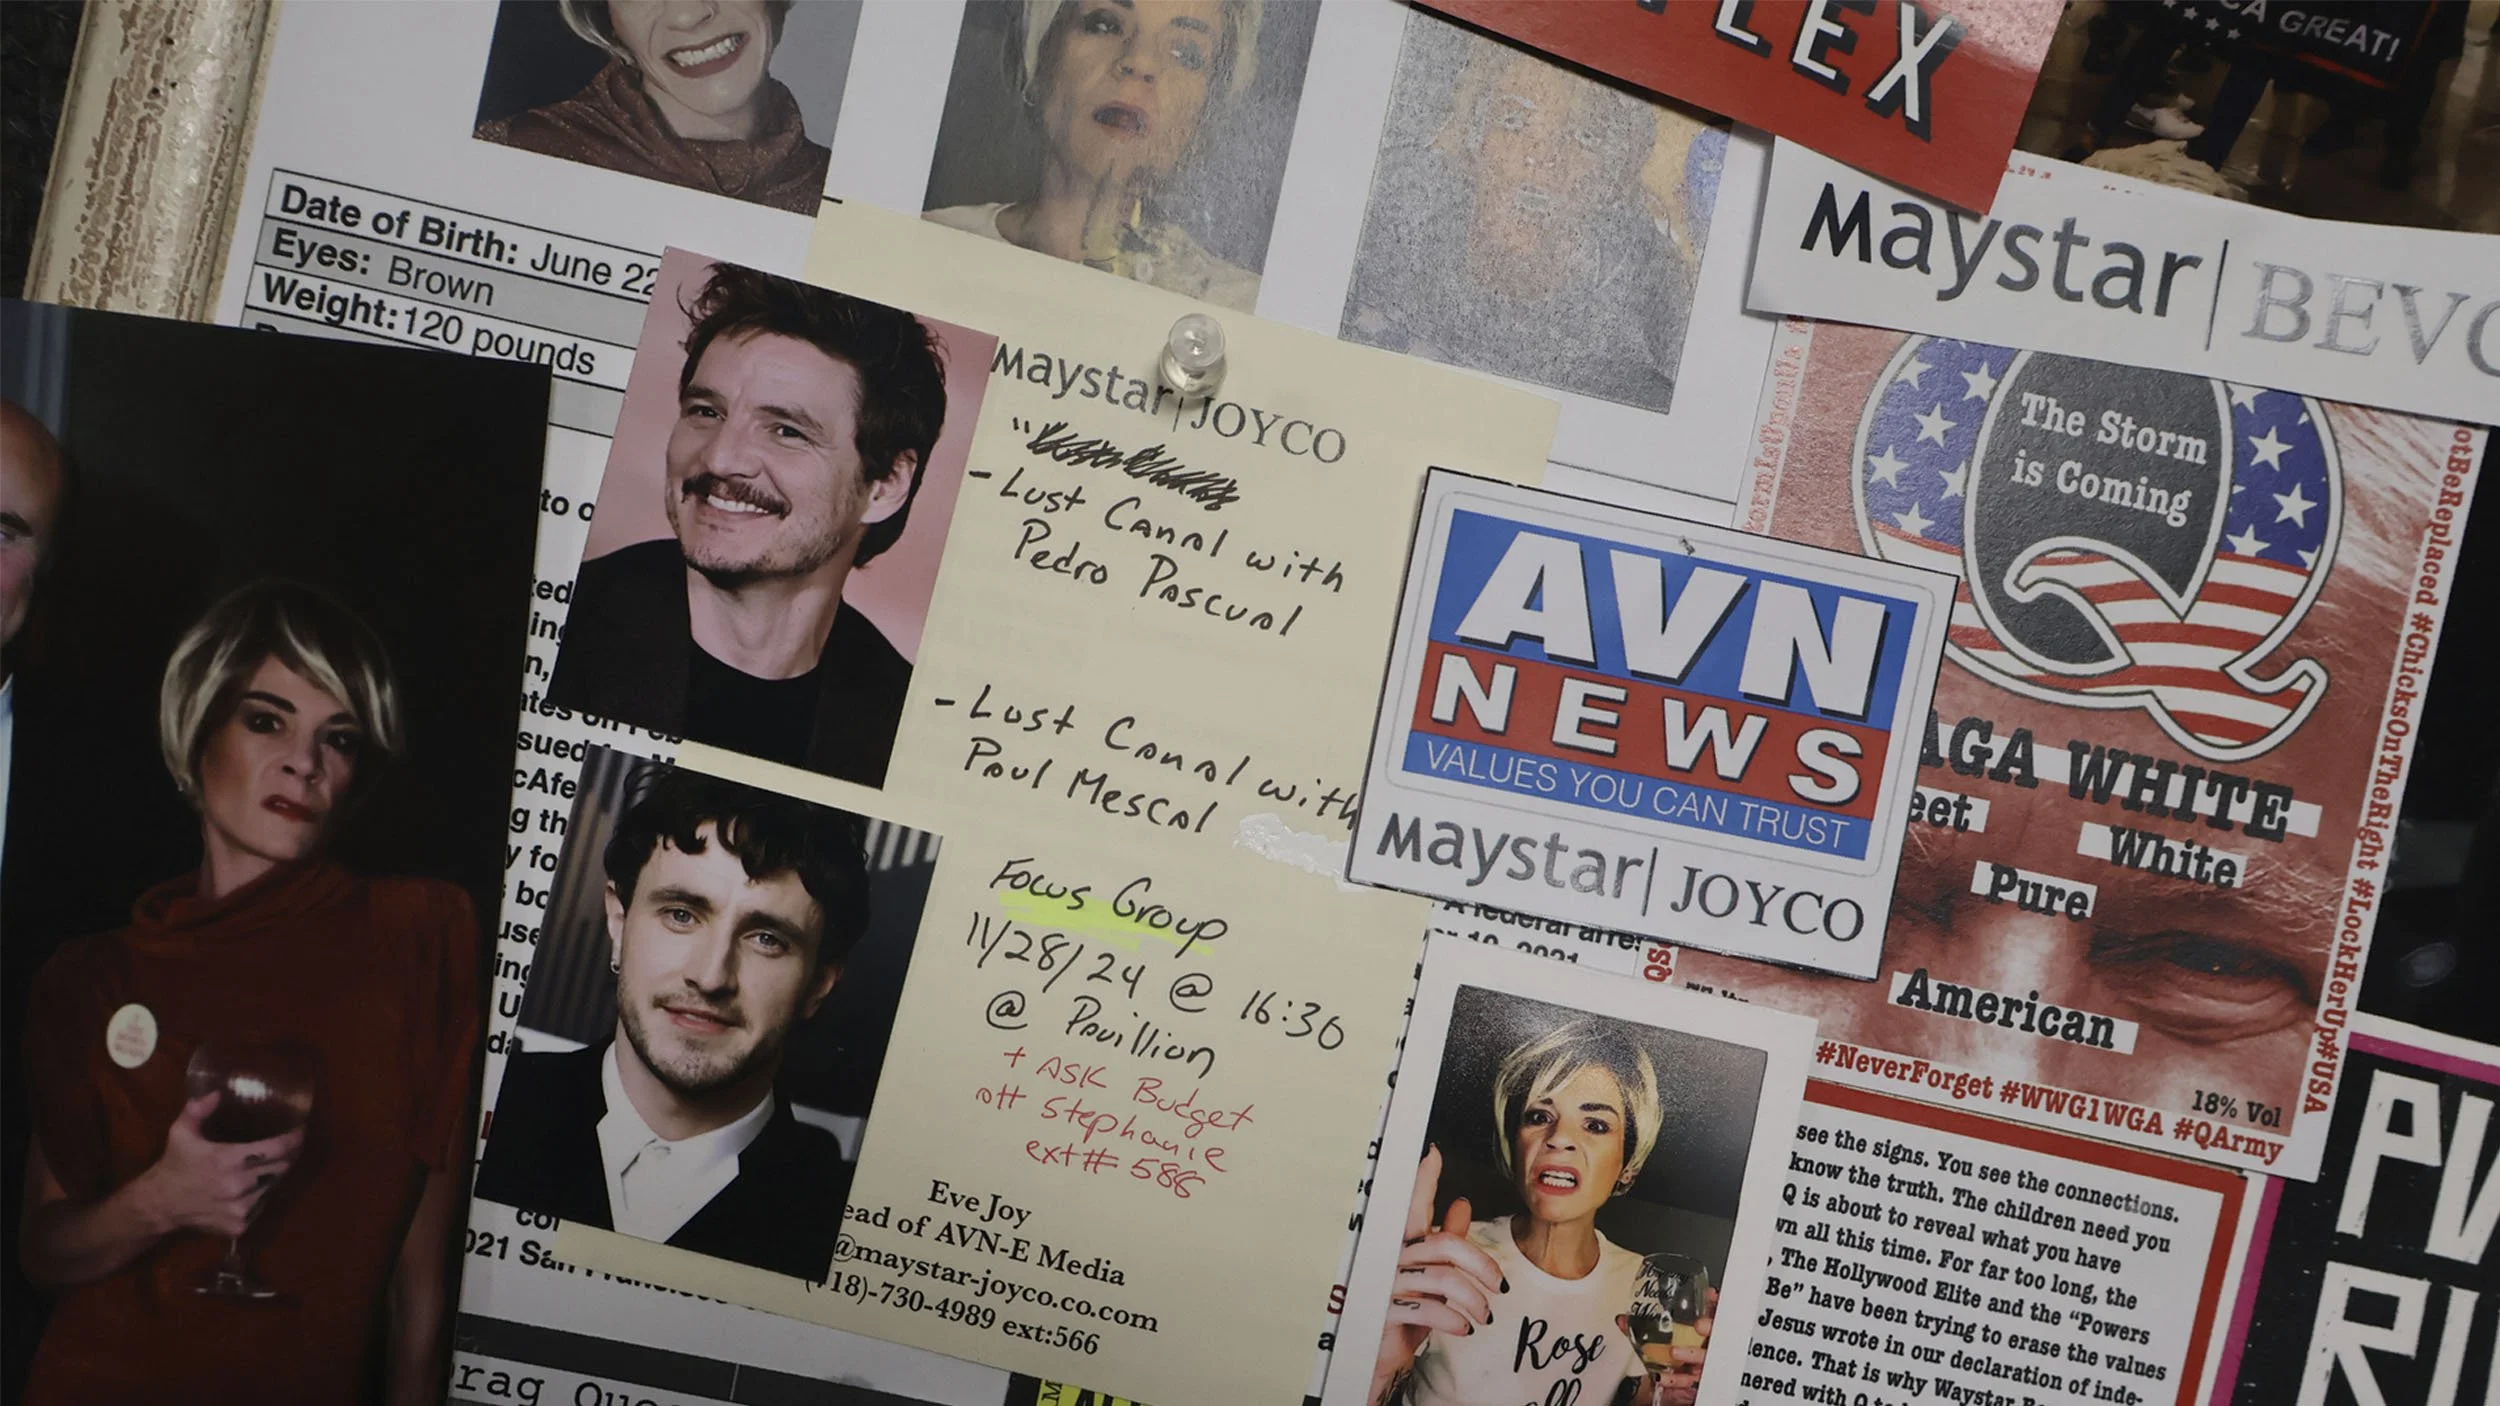 LEX
CA GREAT!
Date of Birth: June 22
Eyes: Brown
Weight: 120 pounds
Maystar | BEVO
Maystar | JOYCO
- Lust Canal with
Pedro Pascual
- Lust Canal with
Paul Mescal
Focus Group
11/28/24 @ 16:30
@ Pavillion
+ ASK Budget
off Stephanie
ext# 588
Eve Joy
ead of AVN-E Media
@maystar-joyco.co.com
18)-730-4989 ext:566
to
ted
ing
n,
sued
cAfe
g th
y fo
bo
use
ing
U
021 San
rag Que
AVN
NEWS
VALUES YOU CAN TRUST
Maystar | JOYCO
The Storm
is Coming
AGA WHITE
eet
White
Pure
American
#NeverForget #WWG1WGA #QArmy
18% Vol
otBeReplaced #ChicksOnTheRight #LockHerUp #USA
A federal arres
10, 2021
see the signs. You see the connections.
know the truth. The children need you
Q is about to reveal what you have
wn all this time. For far too long, the
, The Hollywood Elite and the “Powers
Be” have been trying to erase the values
Jesus wrote in our declaration of inde-
lence. That is why Waystar
nered with Q to
Rosé
all
PW
RU